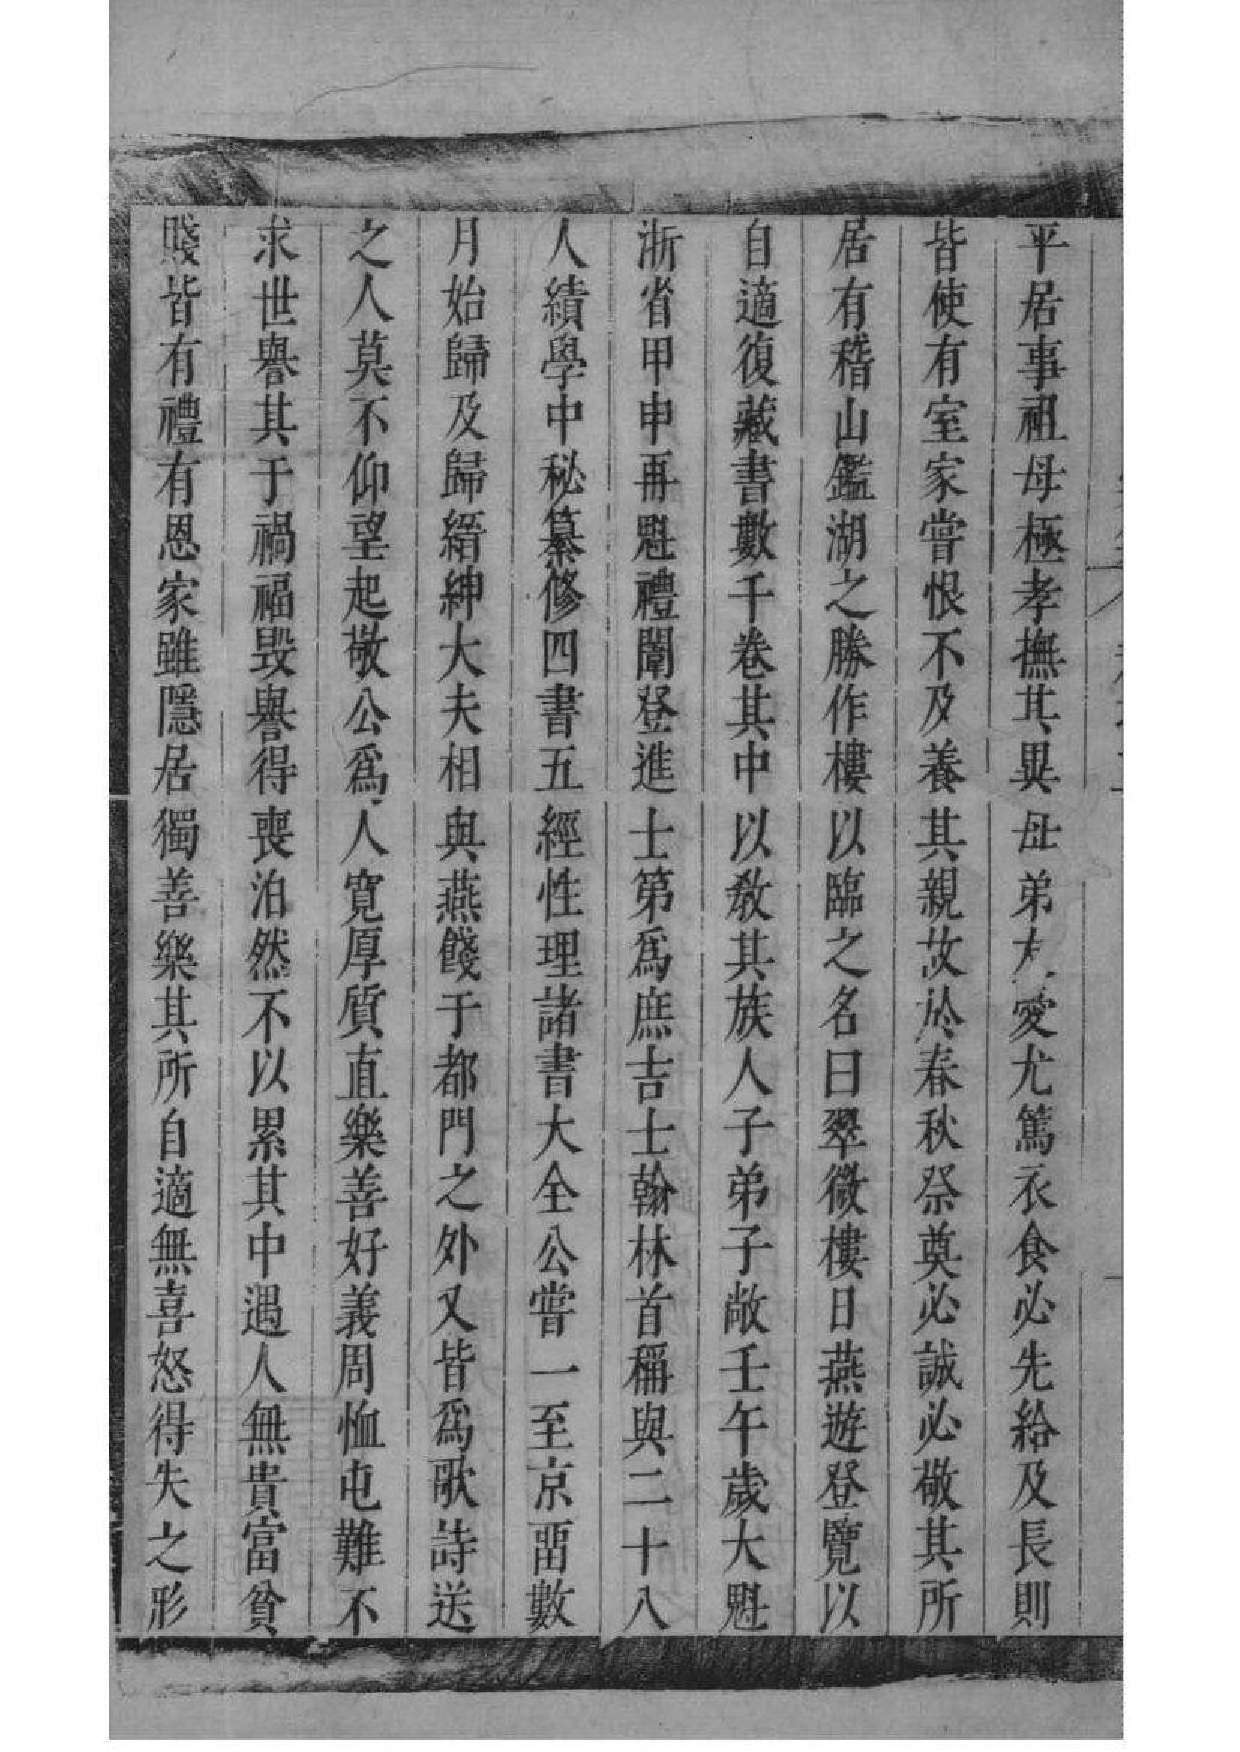 平居事祖母極孝撫其異母弟友愛尤篤衣食必先給及長則
皆使有室家嘗恨不及養其親故於春秋祭奠必誠必敬其所
居有稽山鑑湖之勝作樓以臨之名曰翠微樓日燕遊登覽以
自適復藏書數千卷其中以教其族人子弟子敞壬午歲大魁
浙省甲申再魁禮闈登進士第為庶吉士翰林首稱與二十八
人績學中秘纂修四書五經性理諸書大全公嘗一至京畱數
月始歸及歸縉紳大夫相與燕餞于都門之外又皆爲歌詩送
之人莫不仰望起敬公爲人寬厚質直樂善好義周恤屯難不
求世譽其于禍福毀譽得喪泊然不以累其中遇人無貴富貧
賤皆有禮有恩家雖隱居獨善樂其所自適無喜怒得失之形